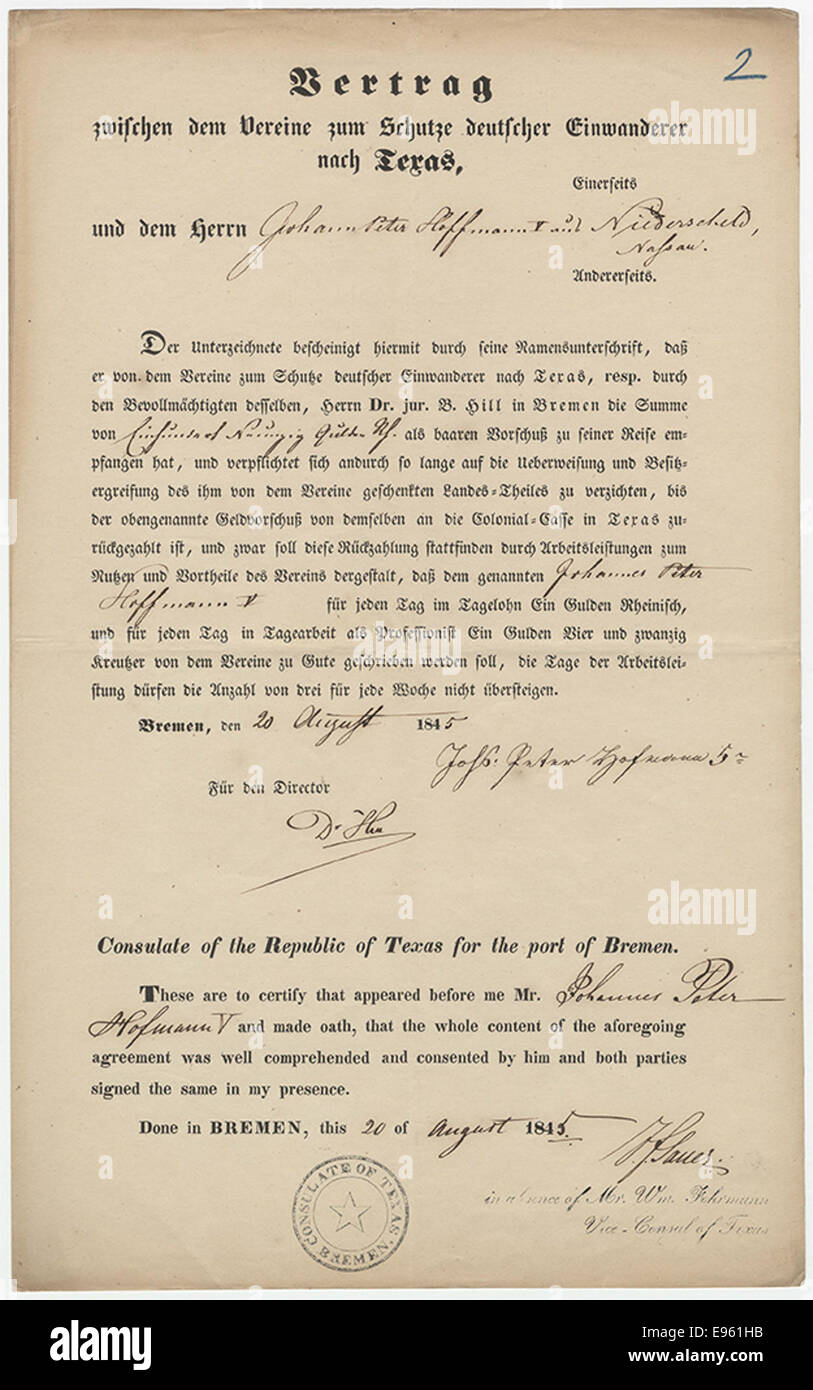 2
Vertrag
zwischen dem Vereine zum Schutze deutscher Einwanderer
nach Texas,
Einerseits
und dem Herrn Johann Peter Hoffmann V aus Niederscheld,
Nassau.
Andererseits.
Der Unterzeichnete bescheinigt hiermit durch seine Namensunterschrift, daß
er von dem Vereine zum Schutze deutscher Einwanderer nach Texas, resp. durch
den Bevollmächtigten desselben, Herrn Dr. jur. B. Hill in Bremen die Summe
von Einhundert Neunzig Gulden Rh. als baaren Vorschuß zu seiner Reise em-
pfangen hat, und verpflichtet sich andurch so lange auf die Ueberweisung und Besitz-
ergreifung des ihm von dem Vereine geschenkten Landes-Theiles zu verzichten, bis
der obengenannte Geldvorschuß von demselben an die Colonial-Casse in Texas zu-
rückgezahlt ist, und zwar soll diese Rückzahlung stattfinden durch Arbeitsleistungen zum
Nutzen und Vortheile des Vereins dergestalt, daß dem genannten Johannes Peter
Hoffmann V für jeden Tag im Tagelohn Ein Gulden Rheinisch,
und für jeden Tag in Tagearbeit als Professionist Ein Gulden Vier und zwanzig
Kreutzer von dem Vereine zu Gute geschrieben werden soll, die Tage der Arbeitslei-
stung dürfen die Anzahl von drei für jede Woche nicht übersteigen.
Bremen, den 20 August 1845
Johs. Peter Hofmann 5
Für den Director
Dr Hill
Consulate of the Republic of Texas for the port of Bremen.
These are to certify that appeared before me Mr. Johannes Peter
Hofmann V and made oath, that the whole content of the aforegoing
agreement was well comprehended and consented by him and both parties
signed the same in my presence.
Done in BREMEN, this 20 of August 1845.
in absence of Mr. Wm. Fehrmann
Vice-Consul of Texas
CONSULATE OF TEXAS.
BREMEN.
alamy
alamy
alamy
alamy
a
a
a
a
alamy
Image ID: E961HB
www.alamy.com